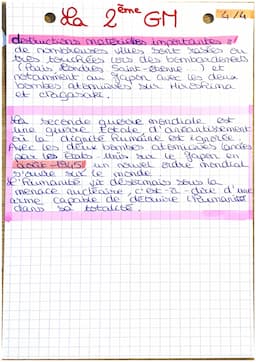 La 2ème GM
4/4
destructions matérielles importantes :
de nombreuses villes sont rasées ou
très touchées lors des bombardements
(Paris Londres Saint-Etienne ) et
notamment au Japon avec les deux
bombes atomiques sur Hiroshima
et Nagasaki.
La seconde guerre mondiale est
une guerre totale d'anéantissement
où la dignité humaine est ignorée
Avec les deux bombes atomiques lancées
par les Etats-Unis sur le Japon en
août 1945, un nouvel ordre mondial
s'ouvre sur le monde.
L'humanité vit désormais sous la
menace nucléaire, c'est-à-dire d'une
arme capable de détruire l'humanité
dans sa totalité.